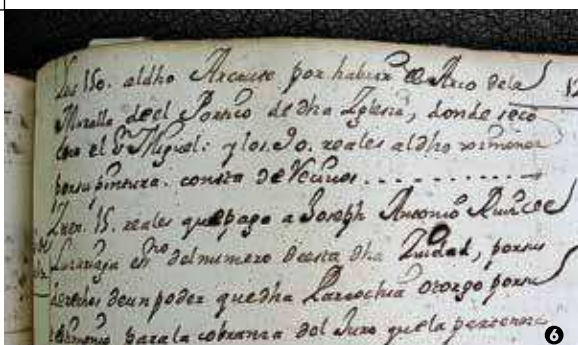 Los 150. aldho Arcause por haber el Arco dela
Muralla deel Portico de dha Iglesia, donde se co
loca el Sn Miguel: y los 90. reales aldho ximenez
por su pintura. consta de Recivos
Iten. 15. reales que pago a Joseph Antonio Ruiz de
Luzuriaga esno del numero deesta dha Ziudad, por sus
derechos de un poder que dha Parrochia otorgo por su
testimonio para la cobranza del Juro que la pertenece
6